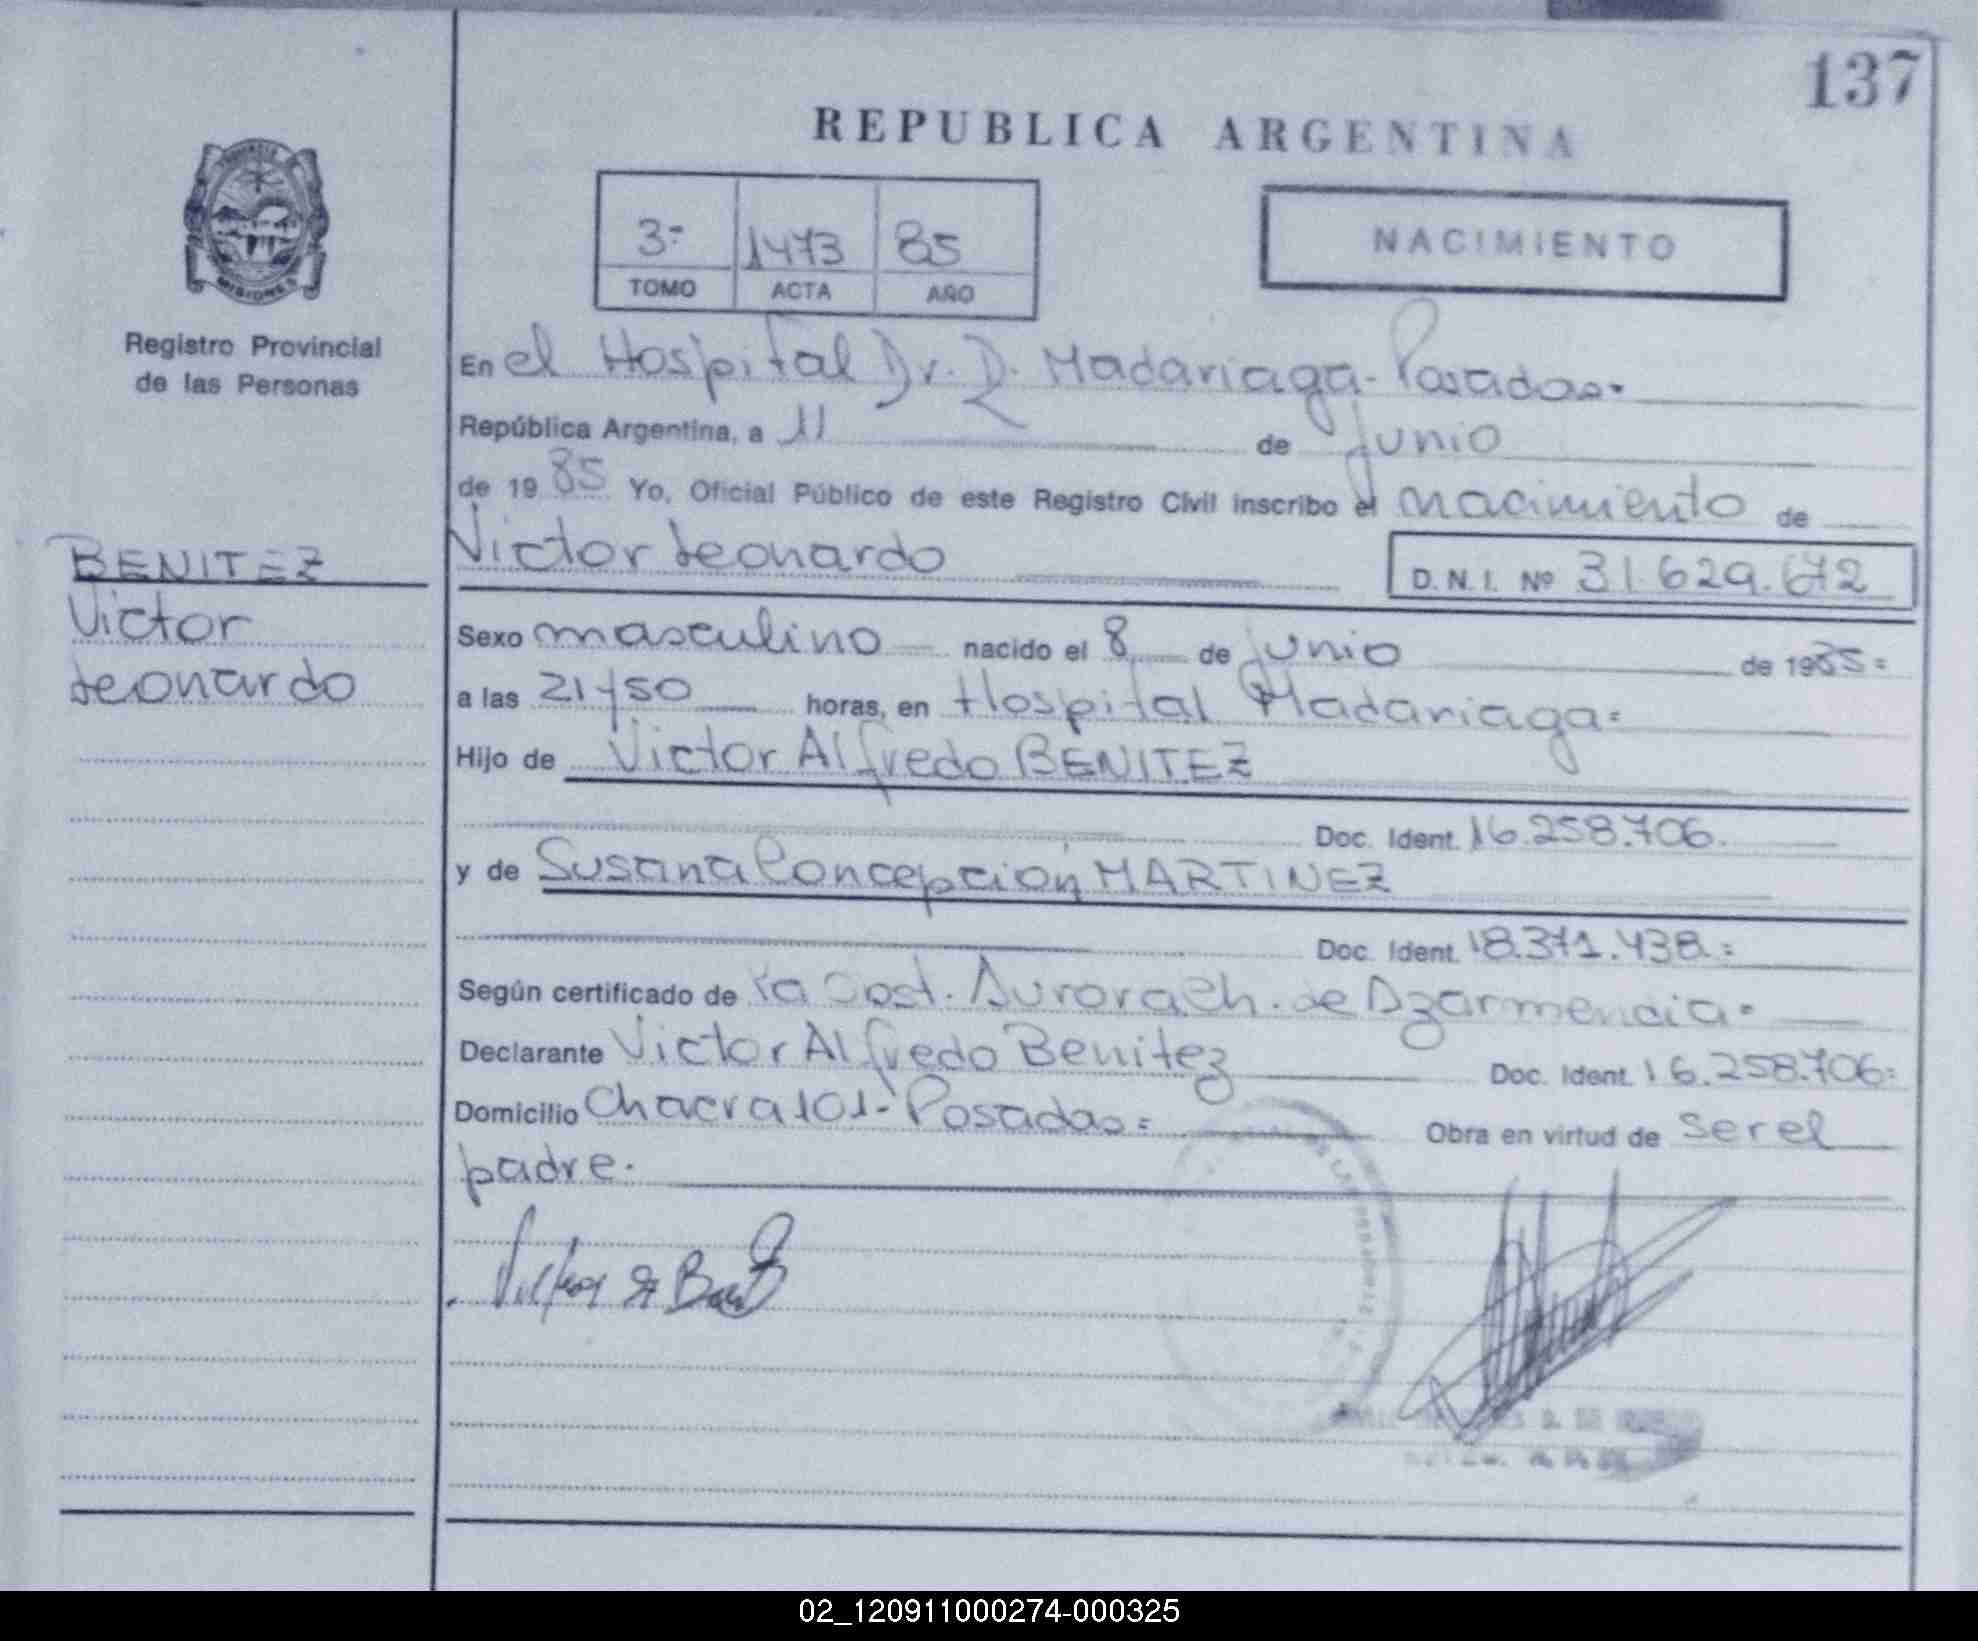 137
REPUBLICA ARGENTINA
3= 1473 85
TOMO ACTA AÑO
NACIMIENTO
MISIONES
Registro Provincial
de las Personas
En el Hospital Dr. R. Madariaga - Posadas.
República Argentina, a 11 de junio
de 1985 Yo, Oficial Público de este Registro Civil inscribo el nacimiento de
Victor Leonardo D.N.I. Nº 31.629.672
BENITEZ
Victor
Leonardo
Sexo masculino nacido el 8 de junio de 1985=
a las 21y50 horas, en Hospital Madariaga=
Hijo de Victor Alfredo BENITEZ
Doc. Ident. 16.258.706.
y de Susana Concepción MARTINEZ
Doc. Ident. 18.371.438=
Según certificado de la Obst. Aurora Ch. de
Declarante Victor Alfredo Benitez Doc. Ident. 16.258.706=
Domicilio Chacra 101- Posadas= Obra en virtud de ser el
padre.
02_120911000274-000325